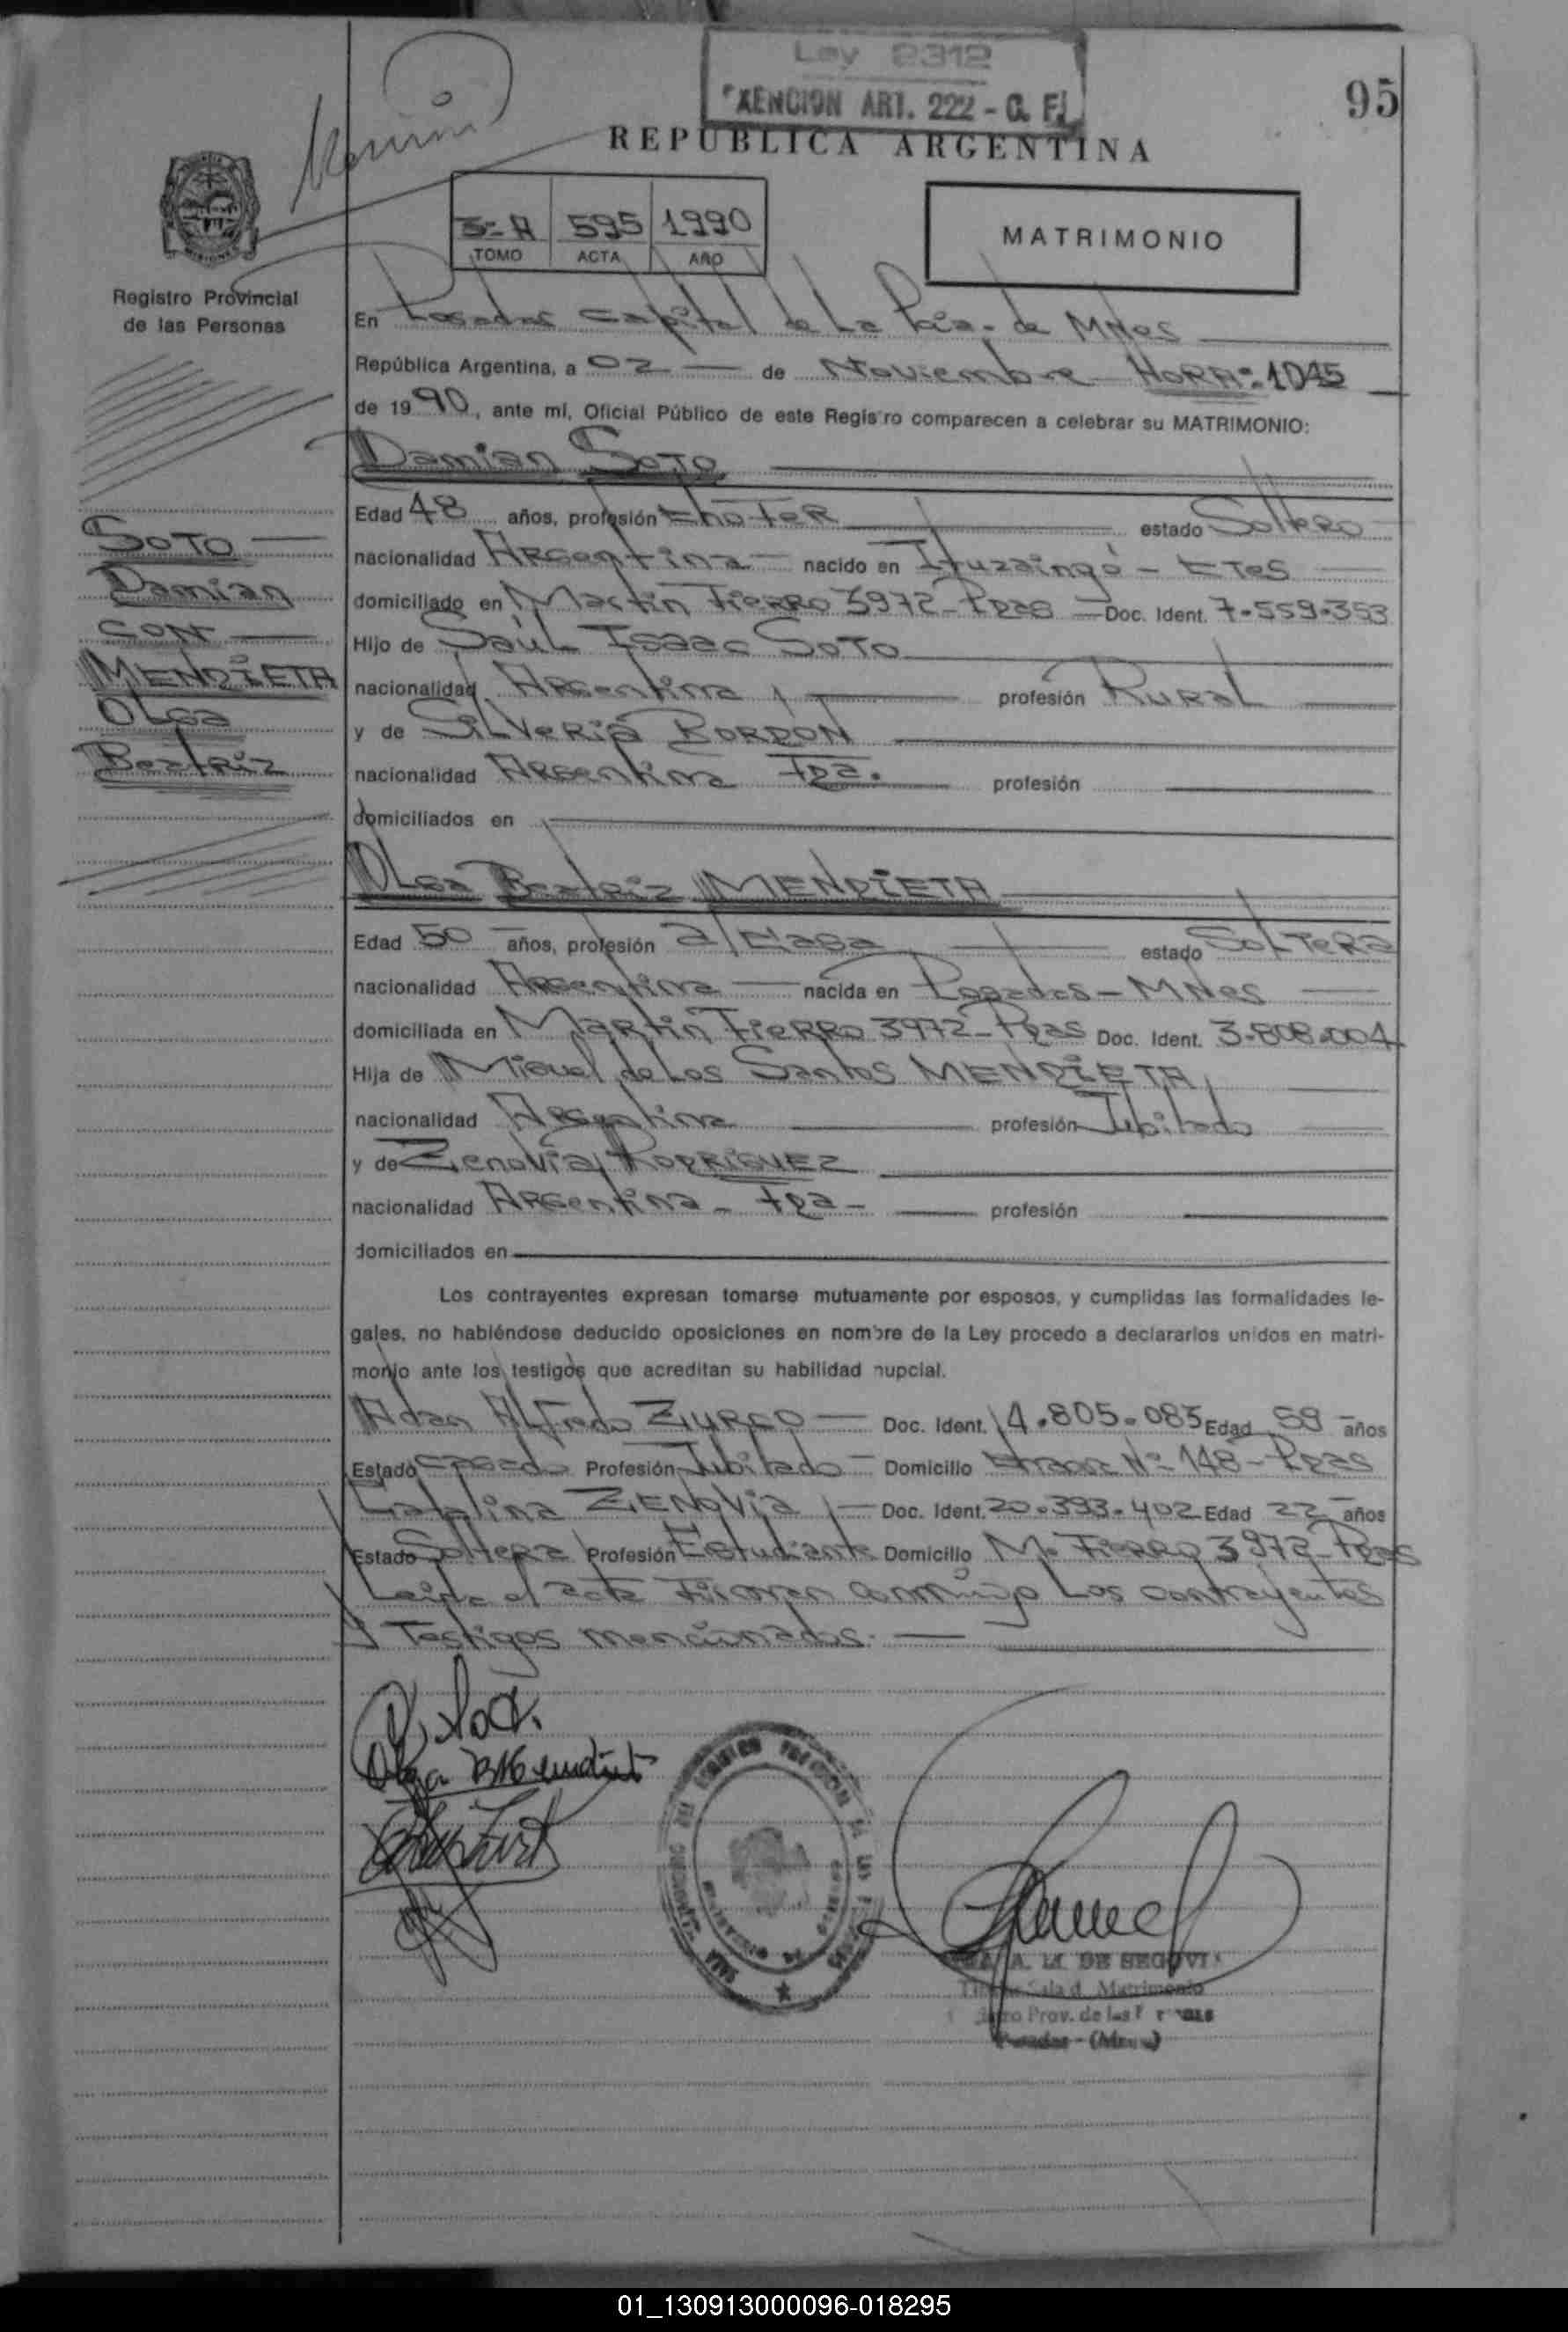 Ley 2312
EXENCION ART. 222 - C. F.
95
REPUBLICA ARGENTINA
3º A 595 1990
TOMO ACTA AÑO
MATRIMONIO
Registro Provincial
de las Personas
En Posadas capital de La Pcia. de MNes
República Argentina, a 02 — de Noviembre HORA: 1045
de 1990, ante mí, Oficial Público de este Registro comparecen a celebrar su MATRIMONIO:
Damian SOTO
Edad 48 años, profesión Chofer estado Soltero
SOTO
Damian
CON
MENDIETA
Olga
Beatriz
nacionalidad Argentina — nacido en Ituzaingó - CTes
domiciliado en Martin Fierro 3972 - Pdas — Doc. Ident. 7.559.353
Hijo de Saúl Isaac SOTO
nacionalidad Argentina profesión Rural
y de Silveria BORDON
nacionalidad Argentina Fda. profesión
domiciliados en
Olga Beatriz MENDIETA
Edad 50 años, profesión a/casa estado Soltera
nacionalidad Argentina — nacida en Posadas - MNes
domiciliada en Martin Fierro 3972 - Pdas Doc. Ident. 3.808.004
Hija de Miguel de Los Santos MENDIETA
nacionalidad Argentina profesión Jubilado
y de Zenovia RODRIGUEZ
nacionalidad Argentina - Fda - profesión
domiciliados en
Los contrayentes expresan tomarse mutuamente por esposos, y cumplidas las formalidades le-
gales, no habiéndose deducido oposiciones en nombre de la Ley procedo a declararlos unidos en matri-
monio ante los testigos que acreditan su habilidad nupcial.
Adan Alfredo — Doc. Ident. 4.805.083 Edad 59 años
Estado casado Profesión Jubilado — Domicilio Nº 148 - Pdas
Catalina ZENOVIA — Doc. Ident. 20.393.402 Edad 22 años
Estado Soltera Profesión Estudiante Domicilio M. Fierro 3972 - Pdas
Leida el acta Firman conmigo Los contrayentes
Y Testigos mencionados. —
D. Soto
Olga B Mendieta
A. M. DE SEGOVIA
Sala d. Matrimonio
Prov. de las
Posadas - (Mnes)
01_130913000096-018295